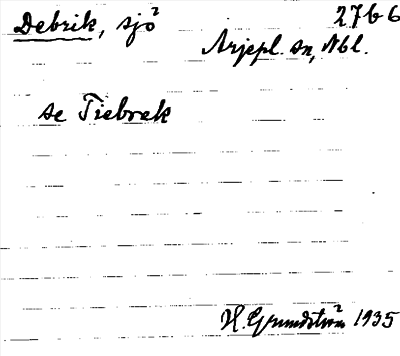 Debrik, sjö² 27b6
Arjepl. sn, Nbl.
se Tiebrek
H. Grundström² 1935